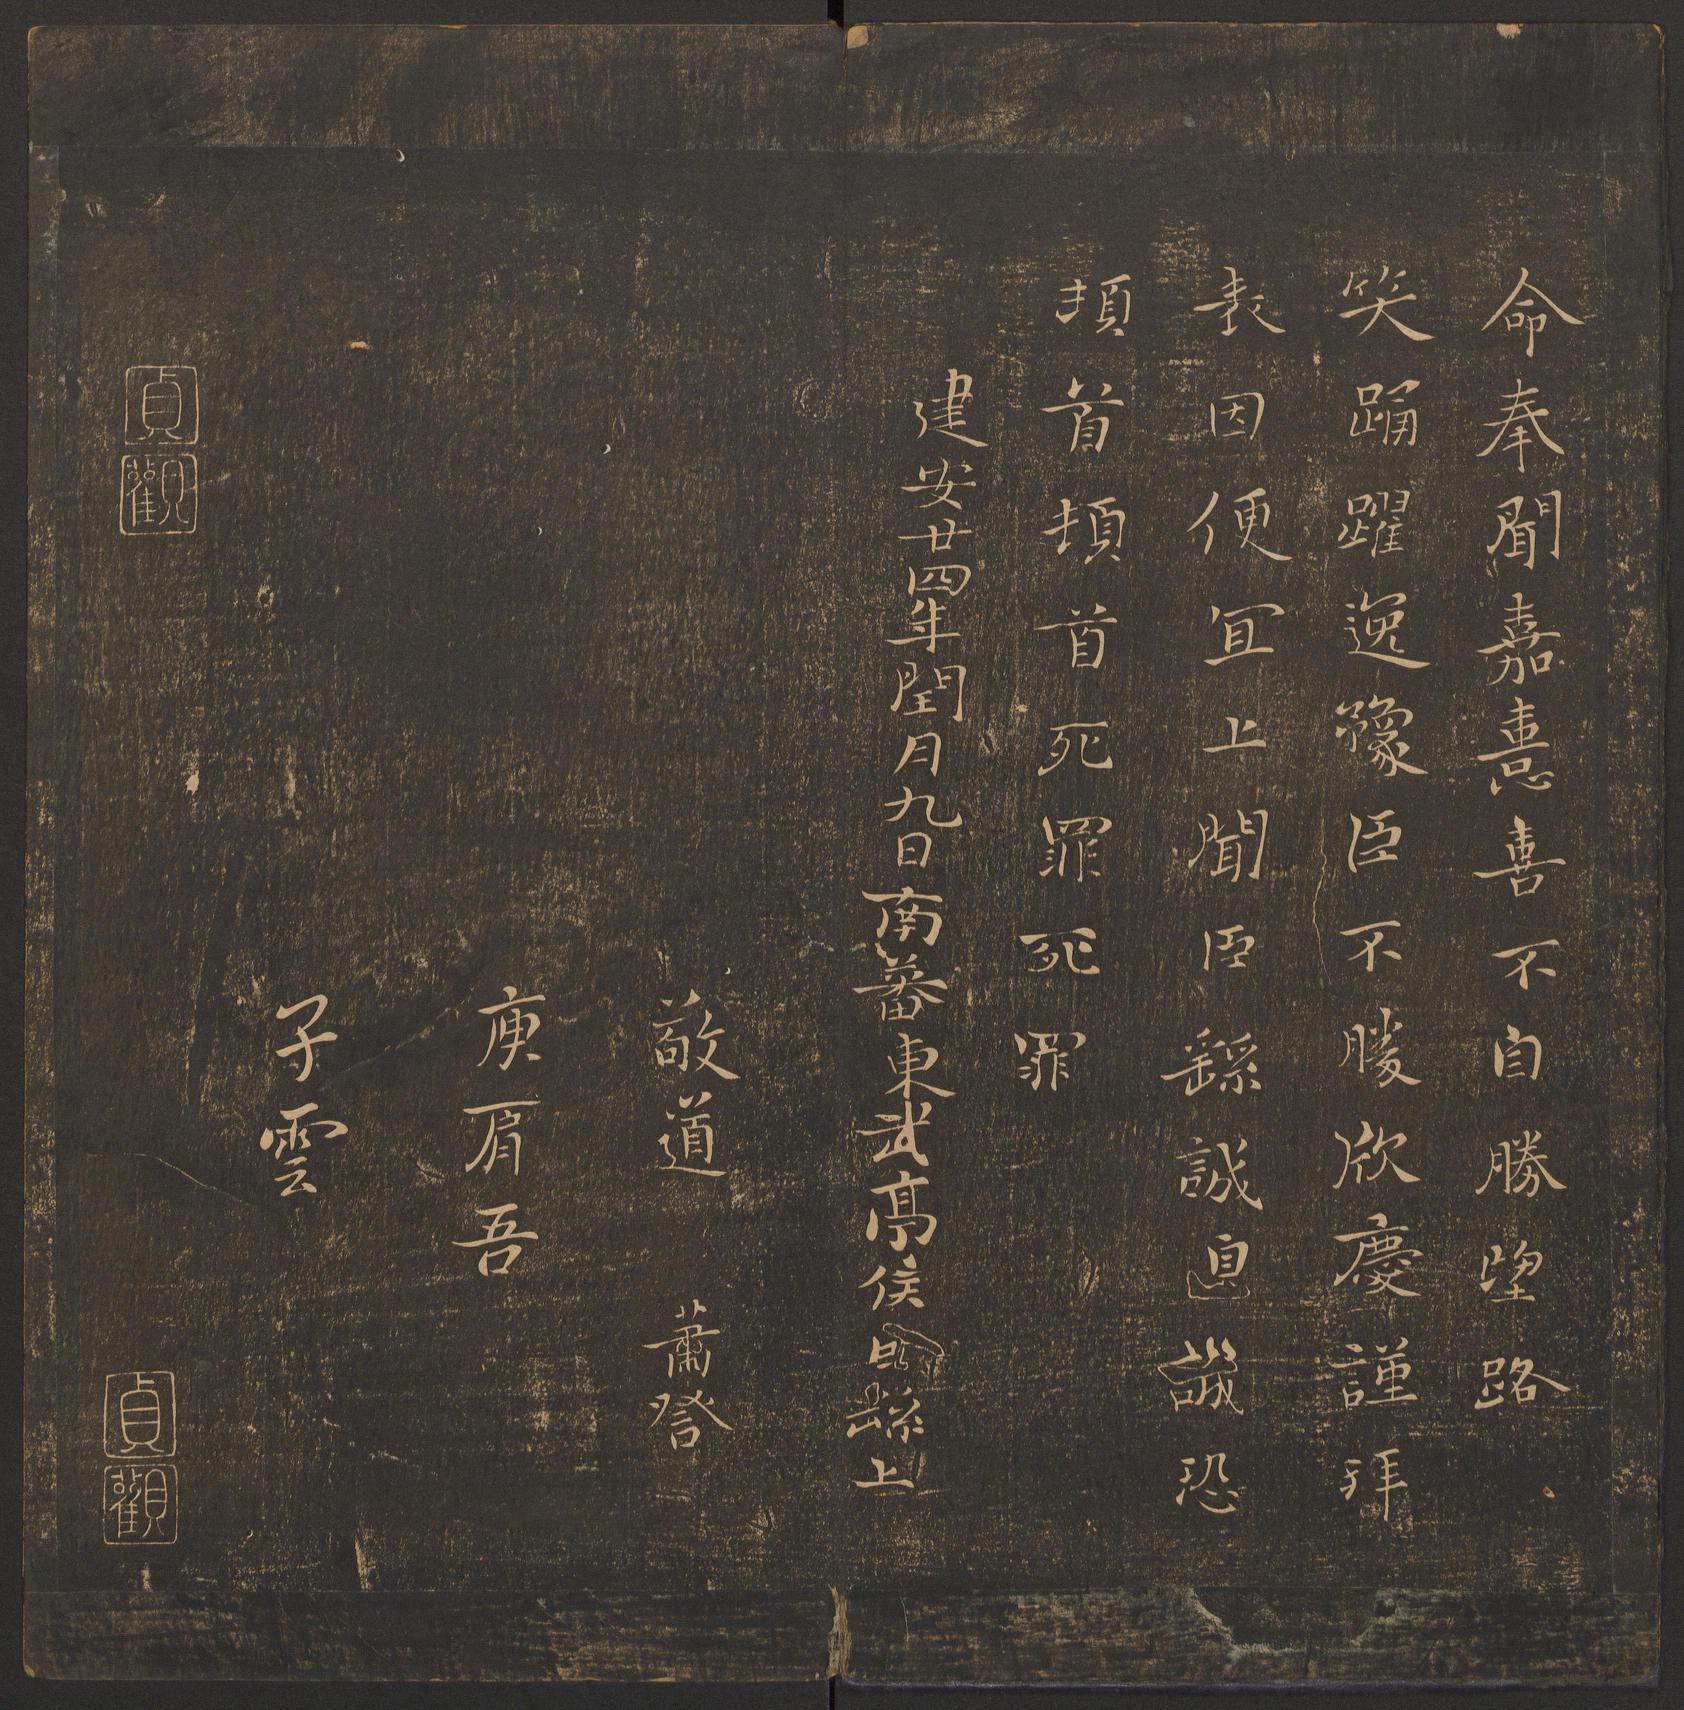 命奉聞嘉憙喜不自勝望路
笑踊躍逸豫臣不勝欣慶謹拜
表因便宜上聞臣繇誠誠恐
頓首頓首死罪死罪
建安廿四年閏月九日南蕃東武亭侯繇上
敬道 蕭
庾肩吾
子雲
貞觀
貞觀